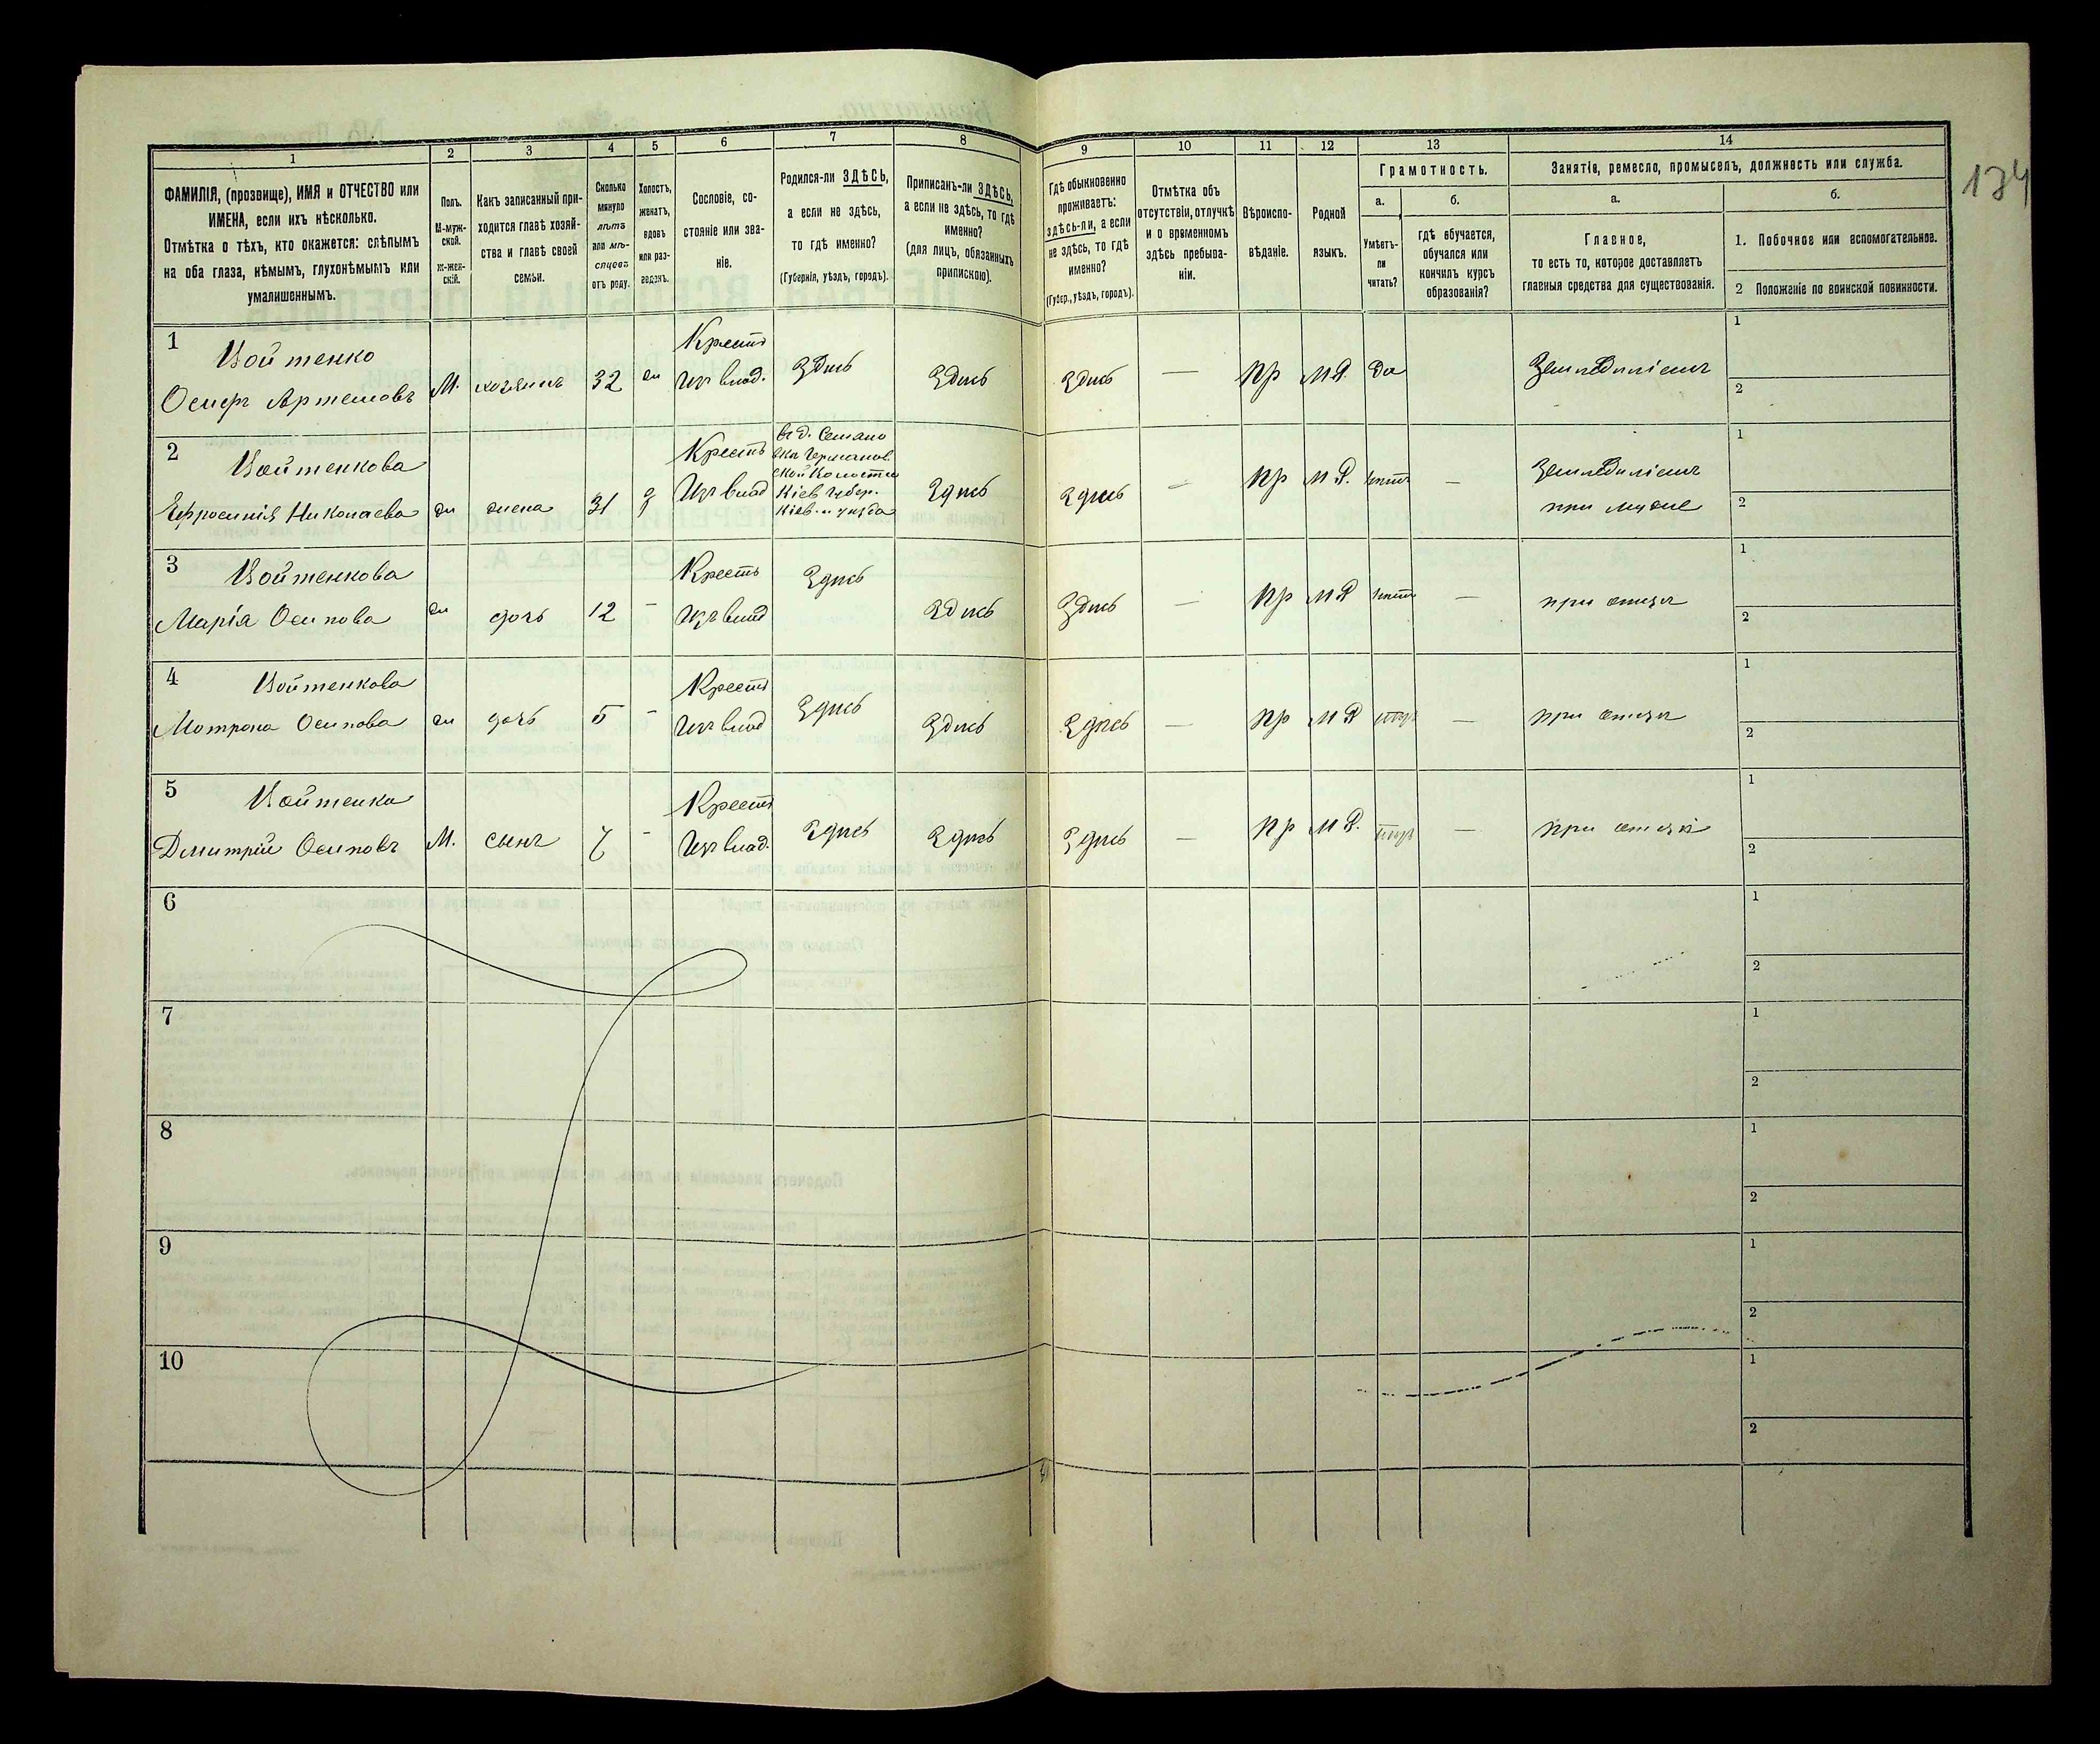 134
1 2 3 4 5 6 7 8 9 10 11 12 13 14
ФАМИЛІЯ, (прозвище), ИМЯ и ОТЧЕСТВО или
ИМЕНА, если ихъ нѣсколько.
Отмѣтка о тѣхъ, кто окажется: слѣпымъ
на оба глаза, нѣмымъ, глухонѣмымъ или
умалишеннымъ.
Полъ.
М-муж-
ской.
ж-жен-
скій.
Какъ записанный при-
ходится главѣ хозяй-
ства и главѣ своей
семьи.
Сколько
минуло
лѣтъ
или мѣ-
сяцевъ
отъ роду.
Холостъ,
женатъ,
вдовъ
или раз-
веденъ.
Сословіе, со-
стояніе или зва-
ніе.
Родился-ли ЗДѢСЬ,
а если не здѣсь,
то гдѣ именно?
(Губернія, уѣздъ, городъ).
Приписанъ-ли ЗДѢСЬ,
а если не здѣсь, то гдѣ
именно?
(для лицъ, обязанныхъ
припискою).
Гдѣ обыкновенно
проживаетъ:
здѣсь-ли, а если
не здѣсь, то гдѣ
именно?
(Губер., уѣздъ, городъ).
Отмѣтка объ
отсутствіи, отлучкѣ
и о временномъ
здѣсь пребыва-
ніи.
Вѣроиспо-
вѣданіе.
Родной
языкъ.
Грамотность.
а.
Умѣетъ-
ли
читать?
б.
гдѣ обучается,
обучался или
кончилъ курсъ
образованія?
Занятіе, ремесло, промыселъ, должность или служба.
а.
Главное,
то есть то, которое доставляетъ
главныя средства для существованія.
б.
1. Побочное или вспомогательное.
2 Положеніе по воинской повинности.
1 Войтенко
Осипъ Артемовъ М. хозяинъ 32 ж Крестъ
Изъ влад. Здѣсь Здѣсь Здѣсь — Пр М Я. да Земледѣліемъ 1
2
2 Войтенкова
Ефросинія Николаева ж жена 31 Крестъ
Изъ влад
Кіев. губер.
Кіев. уѣзда
Здѣсь Здѣсь — Пр М Я. нѣтъ — Земледѣліемъ
при мужѣ 1
2
3 Войтенкова
Марія Осипова ж дочь 12 — Крестъ
Изъ влад Здѣсь Здѣсь Здѣсь — Пр М Я нѣтъ — при отцѣ 1
2
4 Войтенкова
Мотрона Осипова ж дочь 5 — Крестъ
Изъ влад Здѣсь Здѣсь Здѣсь — Пр М Я — при отцѣ 1
2
5 Войтенко
Дмитрій Осиповъ М. сынъ — Крестъ
Изъ влад. Здѣсь Здѣсь Здѣсь — Пр М Я. — при отцѣ 1
2
6 1
2
7 1
2
8 1
2
9 1
2
10 1
2